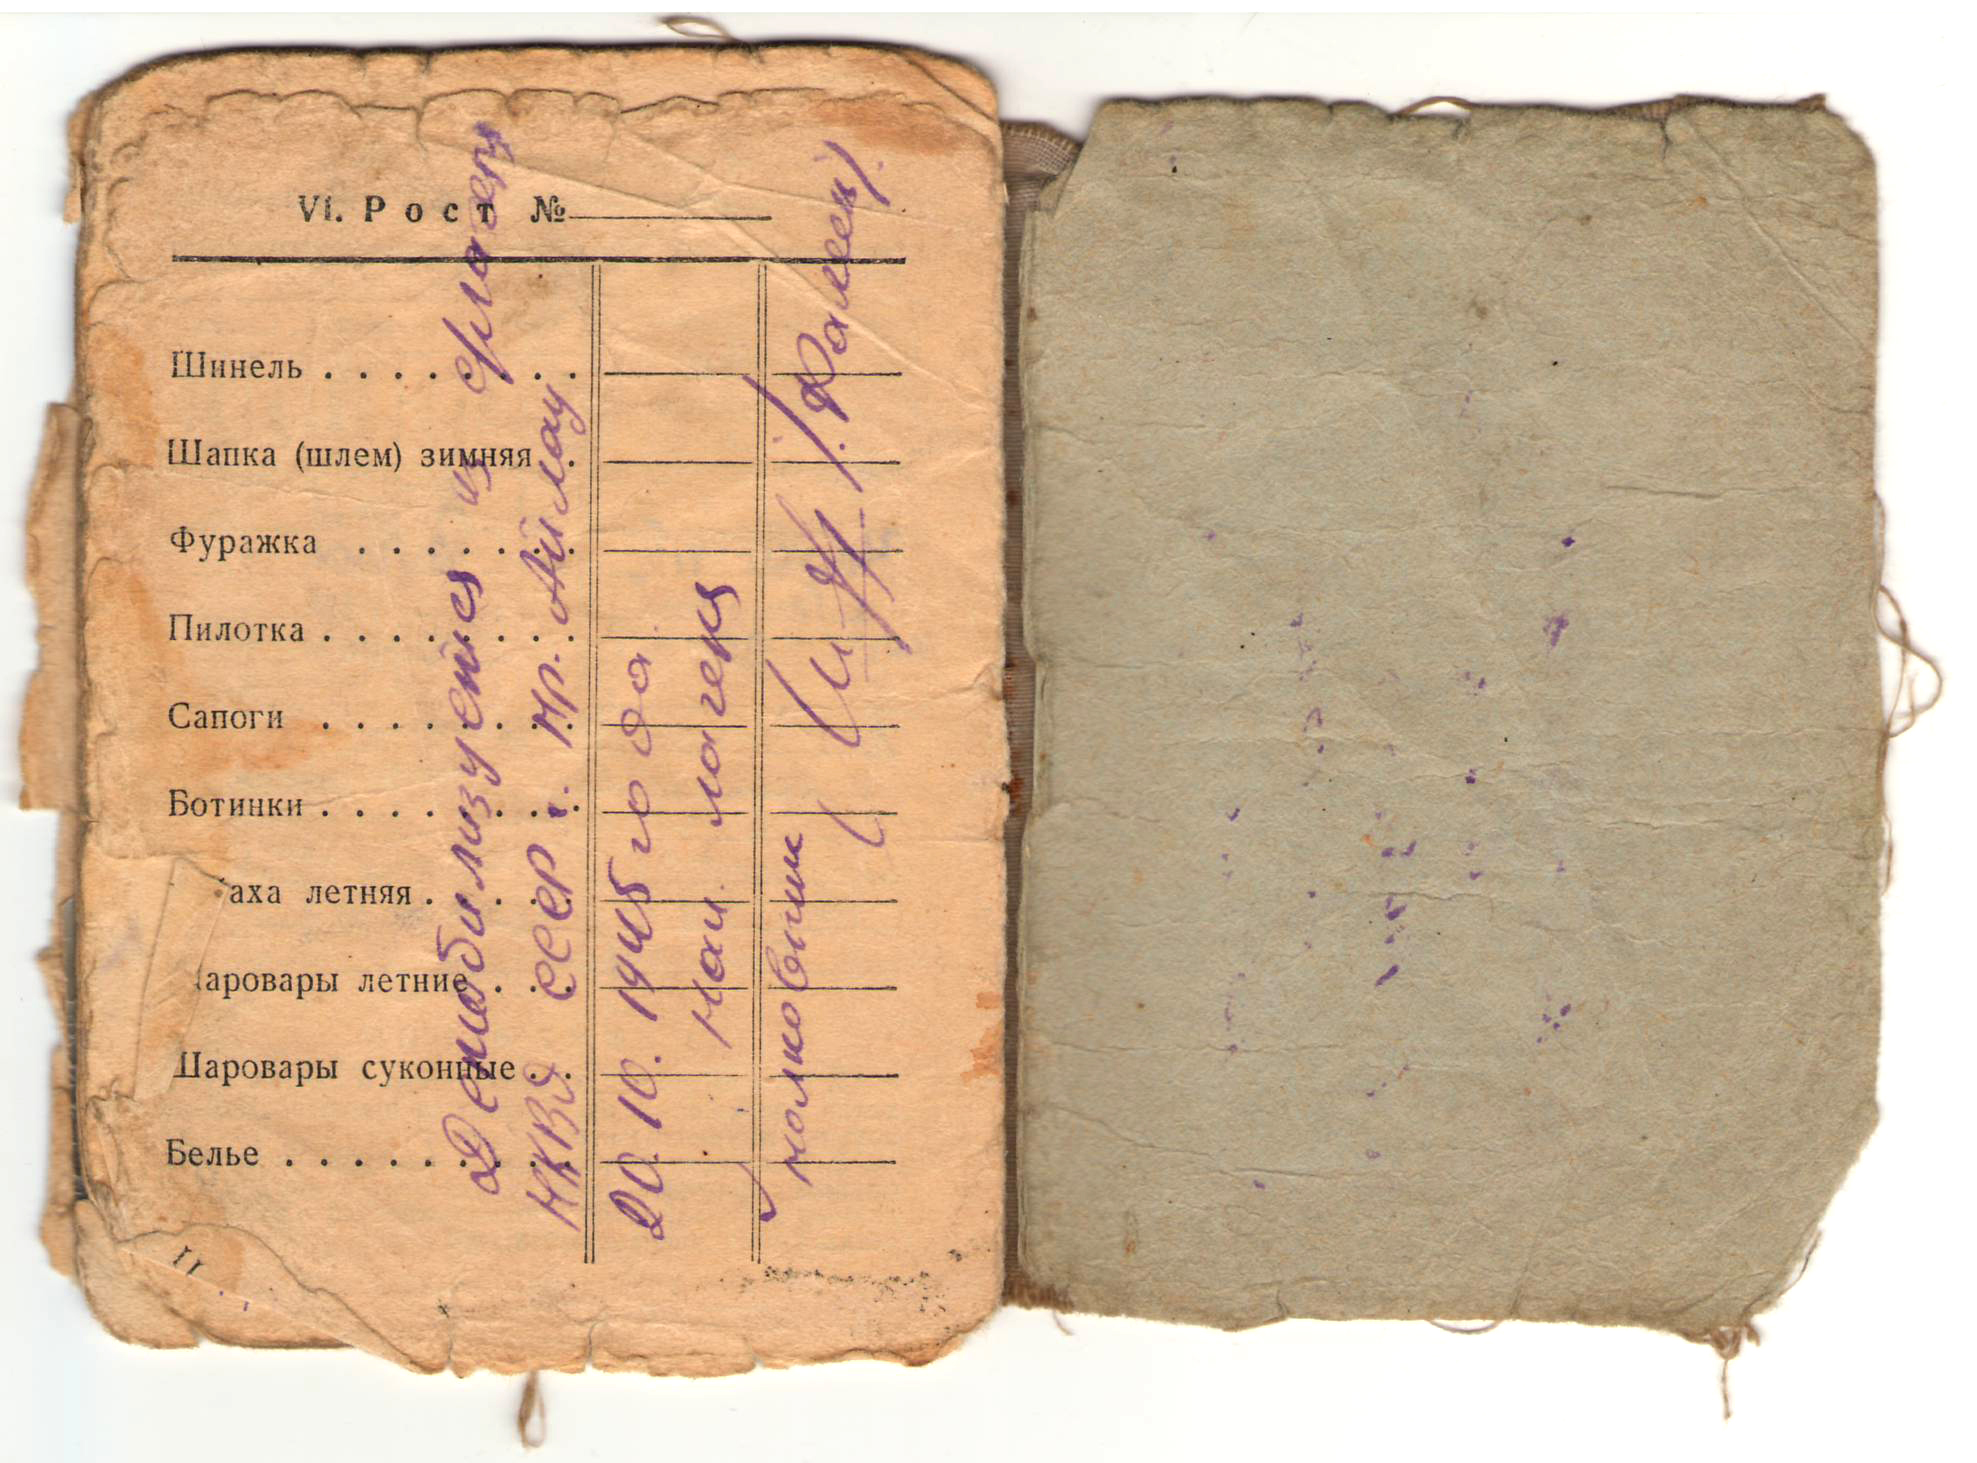 VI. Рост №
Шинель
Шапка (шлем) зимняя
Фуражка
Пилотка
Сапоги
Ботинки
аха летняя
аровары летние
Шаровары суконные
Белье
11
Демобилизуейся из
НКВД СССР г.
20. 10. 1945 года
Нач.
полковник